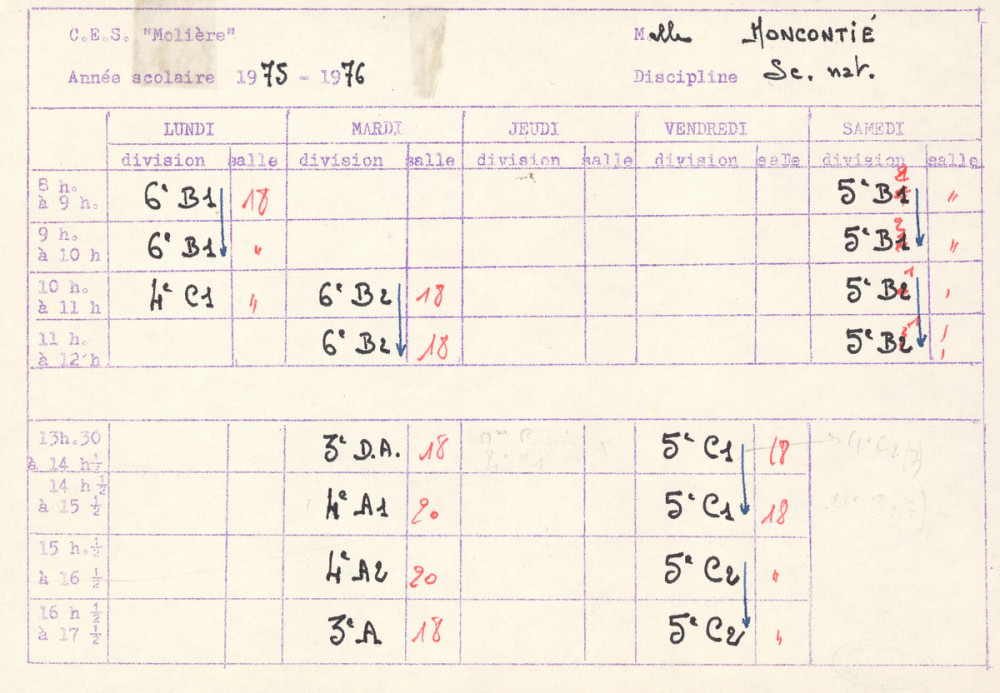 C.E.S. "Molière"
Melle MONCONTIÉ
Année scolaire 1975 - 1976
Discipline Sc. nat.
LUNDI MARDI JEUDI VENDREDI SAMEDI
division salle division salle division salle division salle division salle
8 h. à 9 h. 6e B1 18 5e B1 2 "
9 h. à 10 h 6e B1 " 5e B1 2 "
10 h. à 11 h 4e C1 " 6e B2 18 5e B2 1 '
11 h. à 12 h 6e B2 18 5e B2 1 "
13h.30 à 14 h½ 3e D.A. 18 5e C1 18
14 h ½ à 15 ½ 4e A1 20 5e C1 18
15 h.½ à 16 ½ 4e A2 20 5e C2 "
16 h ½ à 17 ½ 3e A 18 5e C2 "